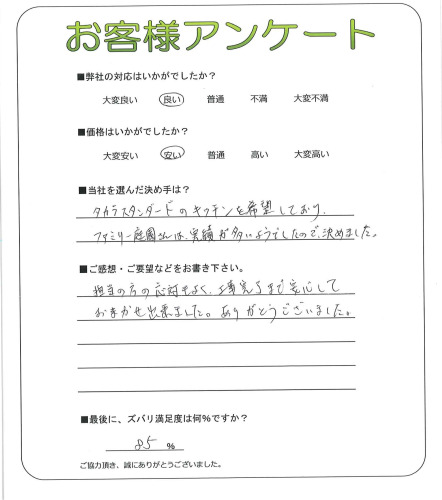 お客様アンケート
■弊社の対応はいかがでしたか？
大変良い 良い 普通 不満 大変不満
■価格はいかがでしたか？
大変安い 安い 普通 高い 大変高い
■当社を選んだ決め手は？
タカラスタンダードのキッチンを希望しており、
ファミリー庭園さんは、実績が多いようでしたので、決めました。
■ご感想・ご要望などをお書き下さい。
担当の方の応対もよく、工事完了まで安心して
おまかせ出来ました。ありがとうございました。
■最後に、ズバリ満足度は何％ですか？
85 %
ご協力頂き、誠にありがとうございました。